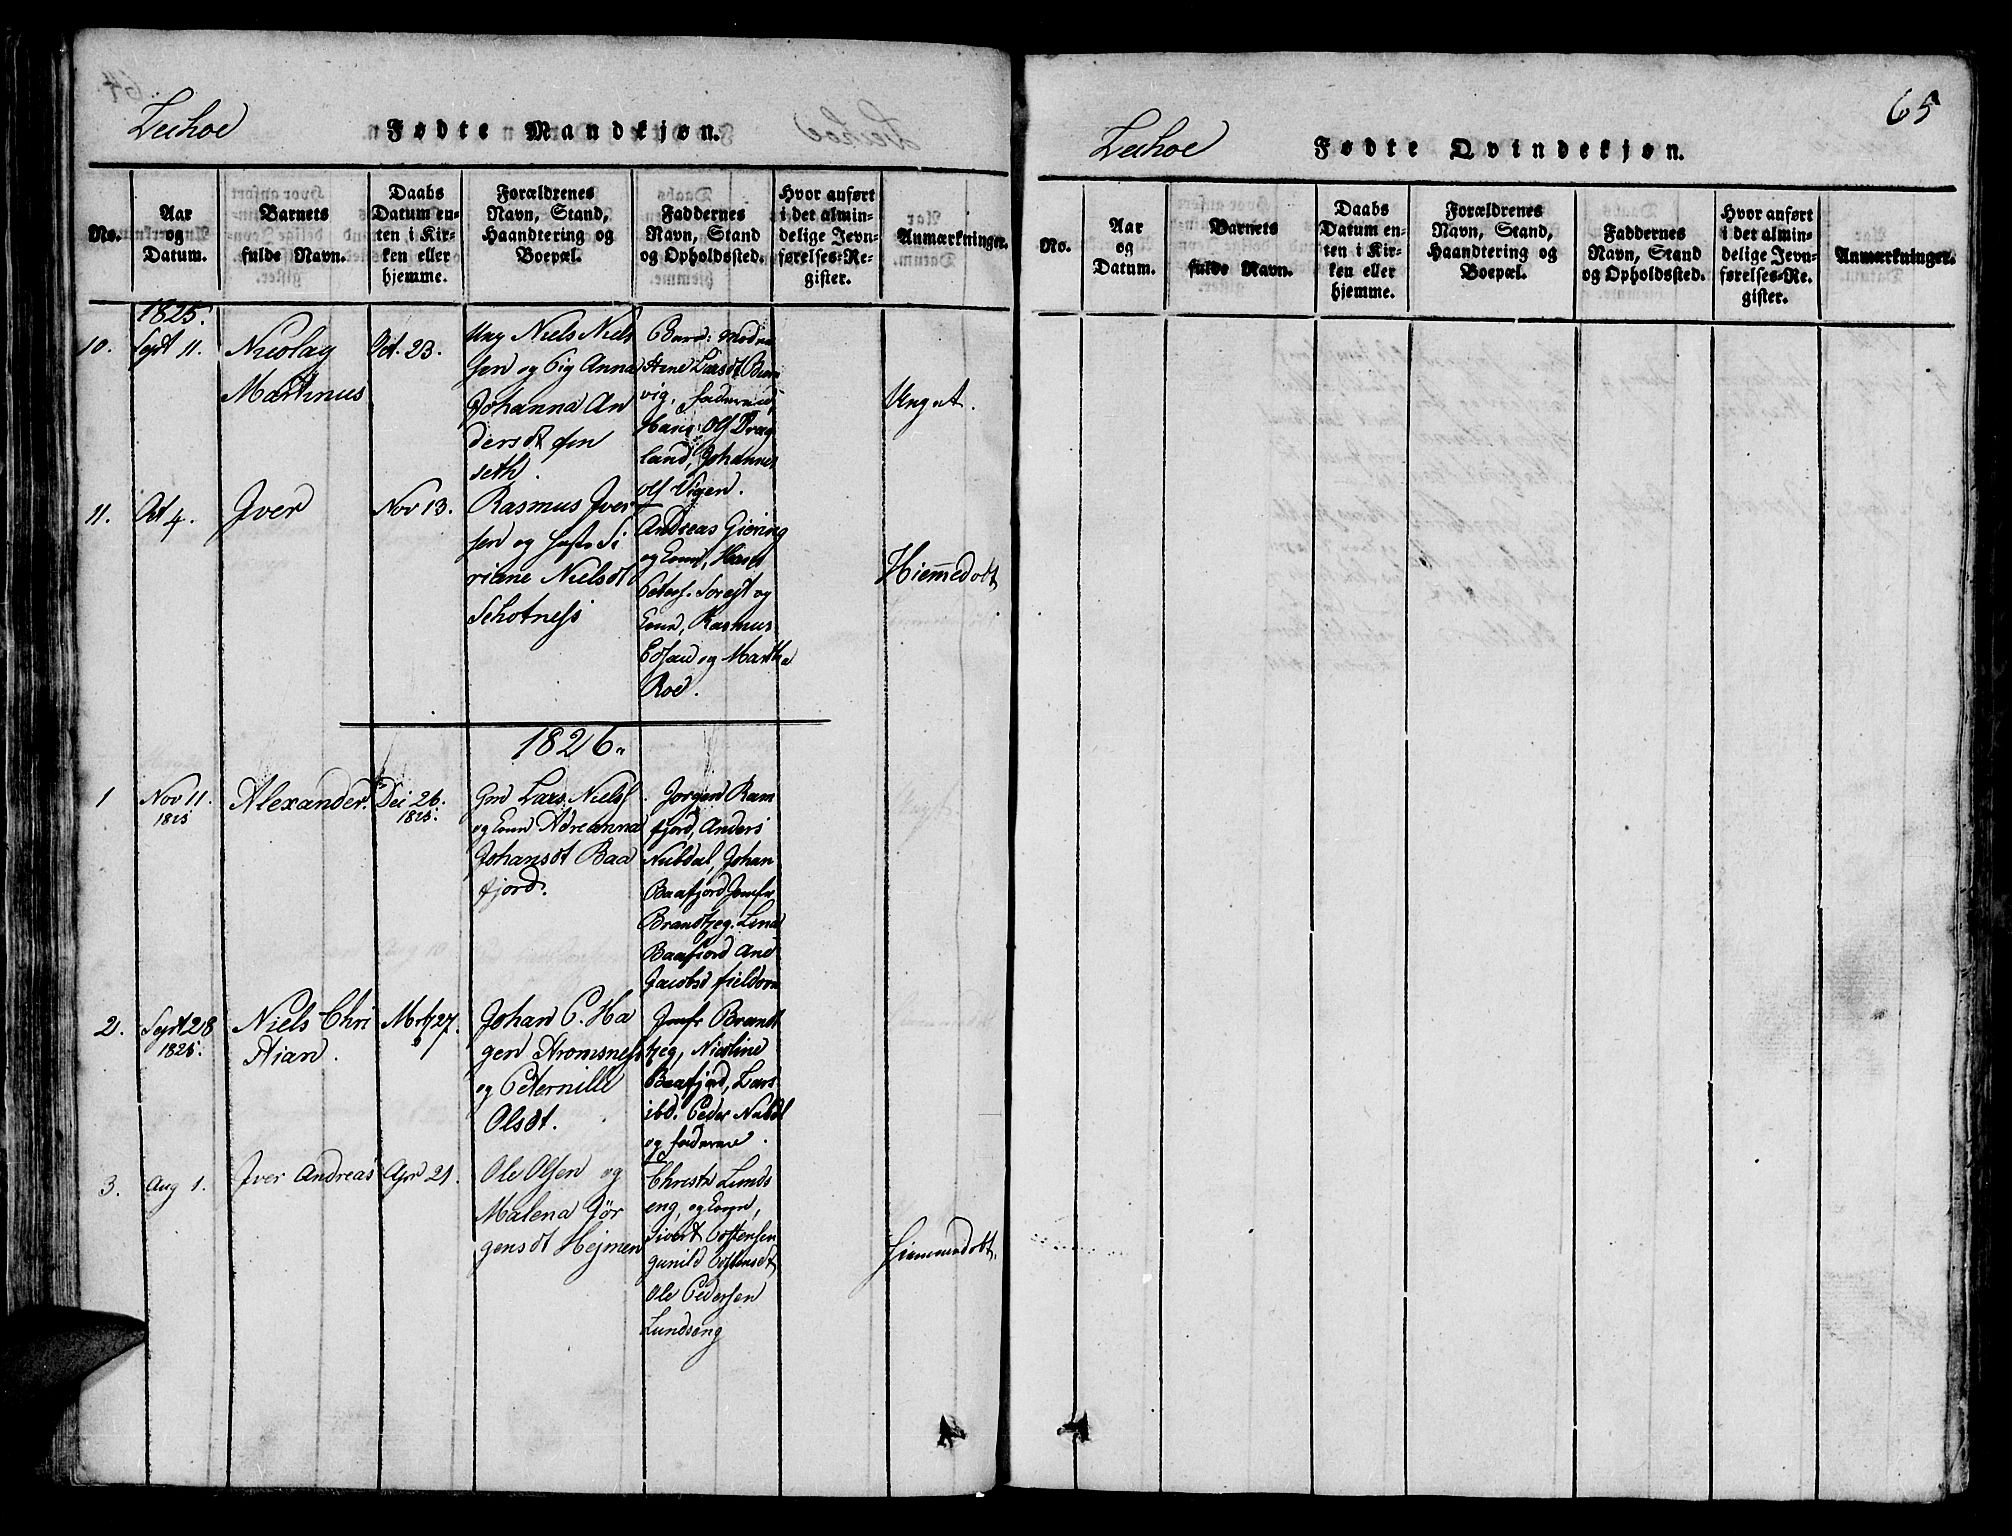 Leehoe
Fødte Mandkjøn.
No.
Aar
og
Datum.
Barnets
fulde Navn.
Daabs
Datum en-
ten i Kir-
ken eller
hjemme.
Forældrenes
Navn, Stand,
Haandtering og
Boepæl.
Faddernes
Navn, Stand
og Opholdssted.
Hvor anført
i det almin-
delige Jevn-
førelses-Re-
gister.
Anmærkninger.
1825.
10.
Sept 11.
Nicolay
Martinus
Oct. 23.
Ung Niels Niels
sen og Pig Anna
Johanna An
dersdt
seth.
Larsdt
vig,
Hans Ols
land, Johannes
Ols Vigen.
Unget.
11.
Oct 4.
Iver
Nov 13.
Rasmus Iver
sen og
riane Nielsdt
Schotness
Andreas Giering
og Kone, Hans
Peters. og
Kone, Rasmus
og Martha
Roe.
Hiemmedøbt
1826.
1
Nov 11.
1825
Alexander.
Dec 26.
1825.
Gm Lars Niels.
og Kone Adreanna
Johansdt Baa
fjord.
Jørgen Ram
fjord, Anders
Nubdal, Johan
Baafjord Jomfr
Brandtzeg. Lena
Baafiord And
Jacobsd
2.
Sept 28
1825.
Niels Chri
stian.
Mrtz 27.
Johan C. Ha
gen Stromsness
og Peternille
Olsdt.
Jomfr Brandt
zeg, Nicoline
Baafjord, Lars
ibd. Peder Nubdl
og faderen.
3.
Aug 1.
Iver Andreas
Apr 21.
Ole Olsen og
Malena Jør
gensdt Hejmen
Christn Lunds
eng, og Kone,
Sivert Tostensen
gunild Tostensdt
Ole Pedersen
Lundseng
Hiemmedøbt.
65
Leehoe
Fødte Qvindekjøn.
No.
Aar
og
Datum.
Barnets
fulde Navn.
Daabs
Datum en-
ten i Kir-
ken eller
hjemme.
Forældrenes
Navn, Stand,
Haandtering og
Boepæl.
Faddernes
Navn, Stand
og Opholdssted.
Hvor anført
i det almin-
delige Jevn-
førelses-Re-
gister.
Anmærkninger.